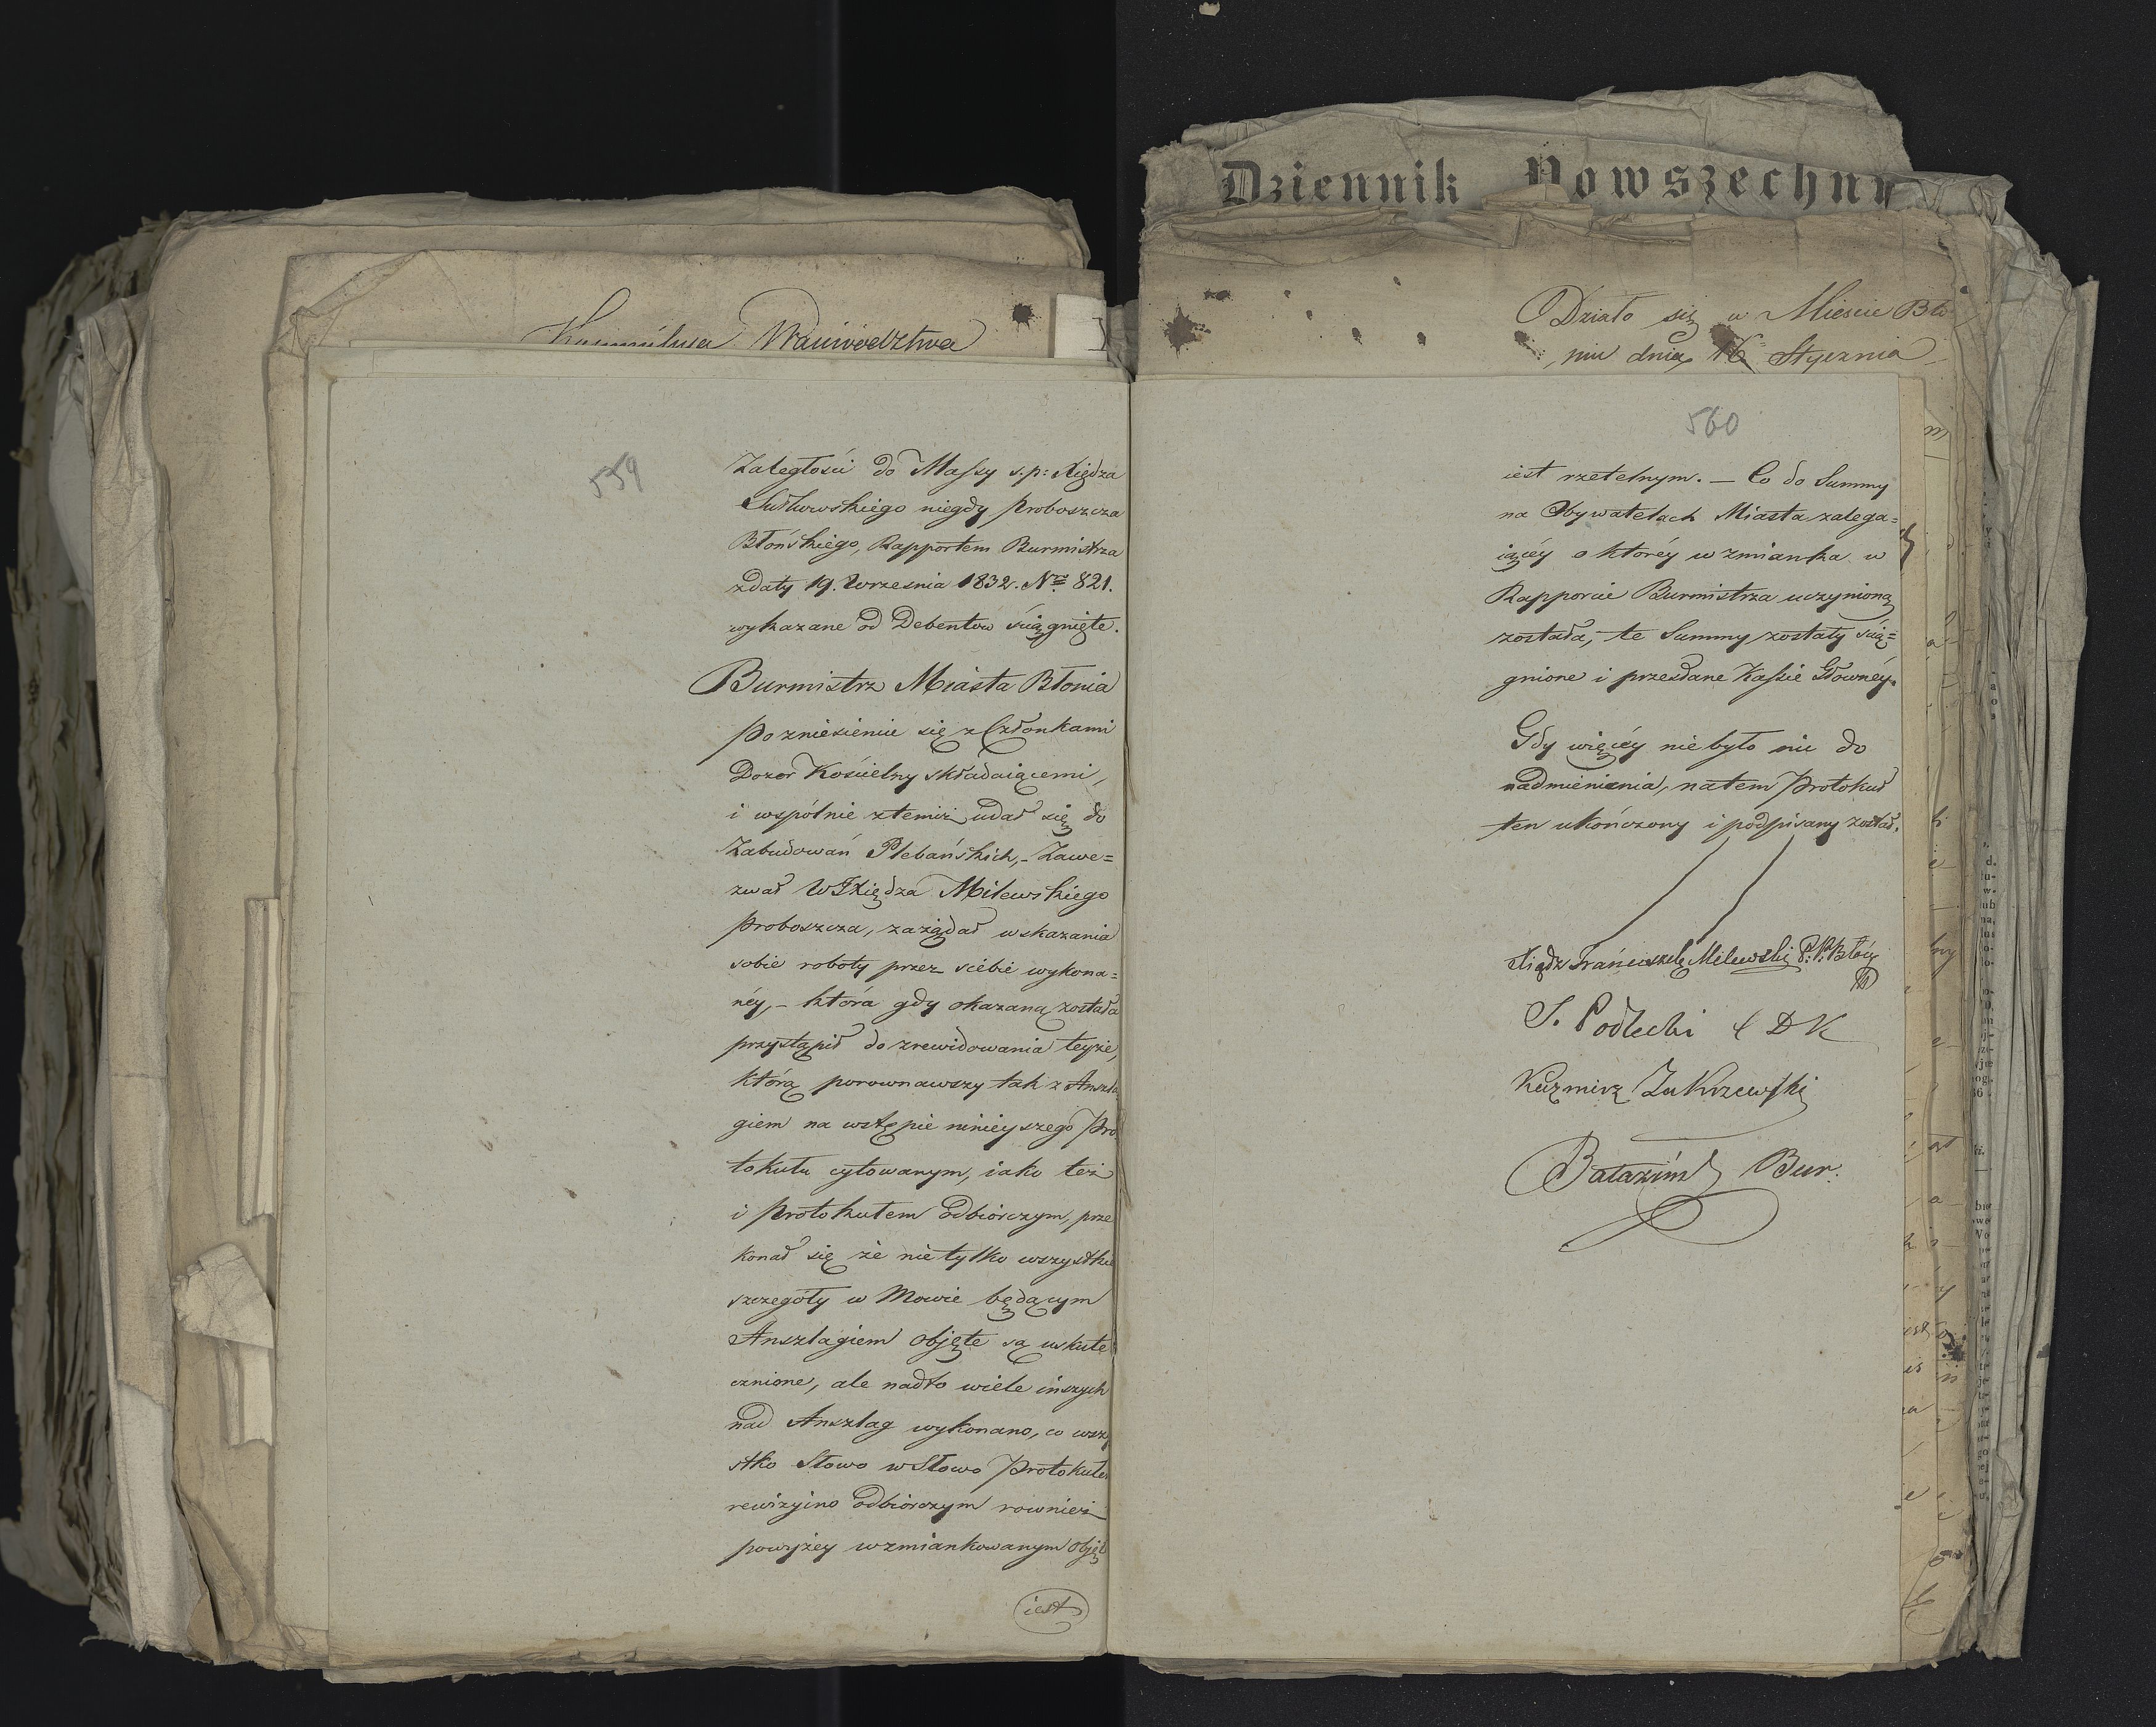 Dziennik Powszechny
Wojewodztwa
Działo się w Miescie Bło
niu dnia 16 Stycznia
559
Zaległości do Massy s.p: Xiędza
Sułkowskiego niegdy Proboszcza
Błońskiego, Rapportem Burmistrza
zdaty 19. Września 1832. Nro 821.
wykazane od Debentów ściągnięte.
Burmistrz Miasta Błonia
po zniesieniu się z Członkami
Dozor Kościelny składaiącemi,
i wspólnie ztemiż udał się do
Zabudowań Plebańskich,- Zawe=
zwał WJXiędza Milewskiego
Proboszcza, zażądał wskazania
sobie roboty przez siebie wykona=
néy,- która gdy okazaną została
przystąpił do zrewidowania teyże,
którą porownawszy tak z Anszla
giem na wstępie ninieyszego Pro
tokułu cytowanym, iako też
i Protokułem Odbiorczym, prze
konał się że nie tylko wszystkie
szczegóły w Mowie będącym
Anszlagiem objęte są uskute
cznione, ale nadto wiele inszych
nad Anszlag wykonano, co wszy
stko Słowo w Słowo Protokułem
rewizyino Odbiorczym rownież
powyżey wzmiankowanym objęte
iest
560
iest rzetelnym. - Co do Summy
na Obywatelach Miasta zalega=
iącéy o któréy wzmianka w
Rapporcie Burmistrza uczynioną
została, te Summy zostały ścią=
gnione i przesłane Kassie Główney.
Gdy więcéy niebyło nic do
nadmienienia, natem Protokuł
ten ukończony i podpisany został.
Xiądz Franciszek Milewski P. P. Błoń
S. Podlecki C D K
Kazmirz Zakrzewski
Bur.